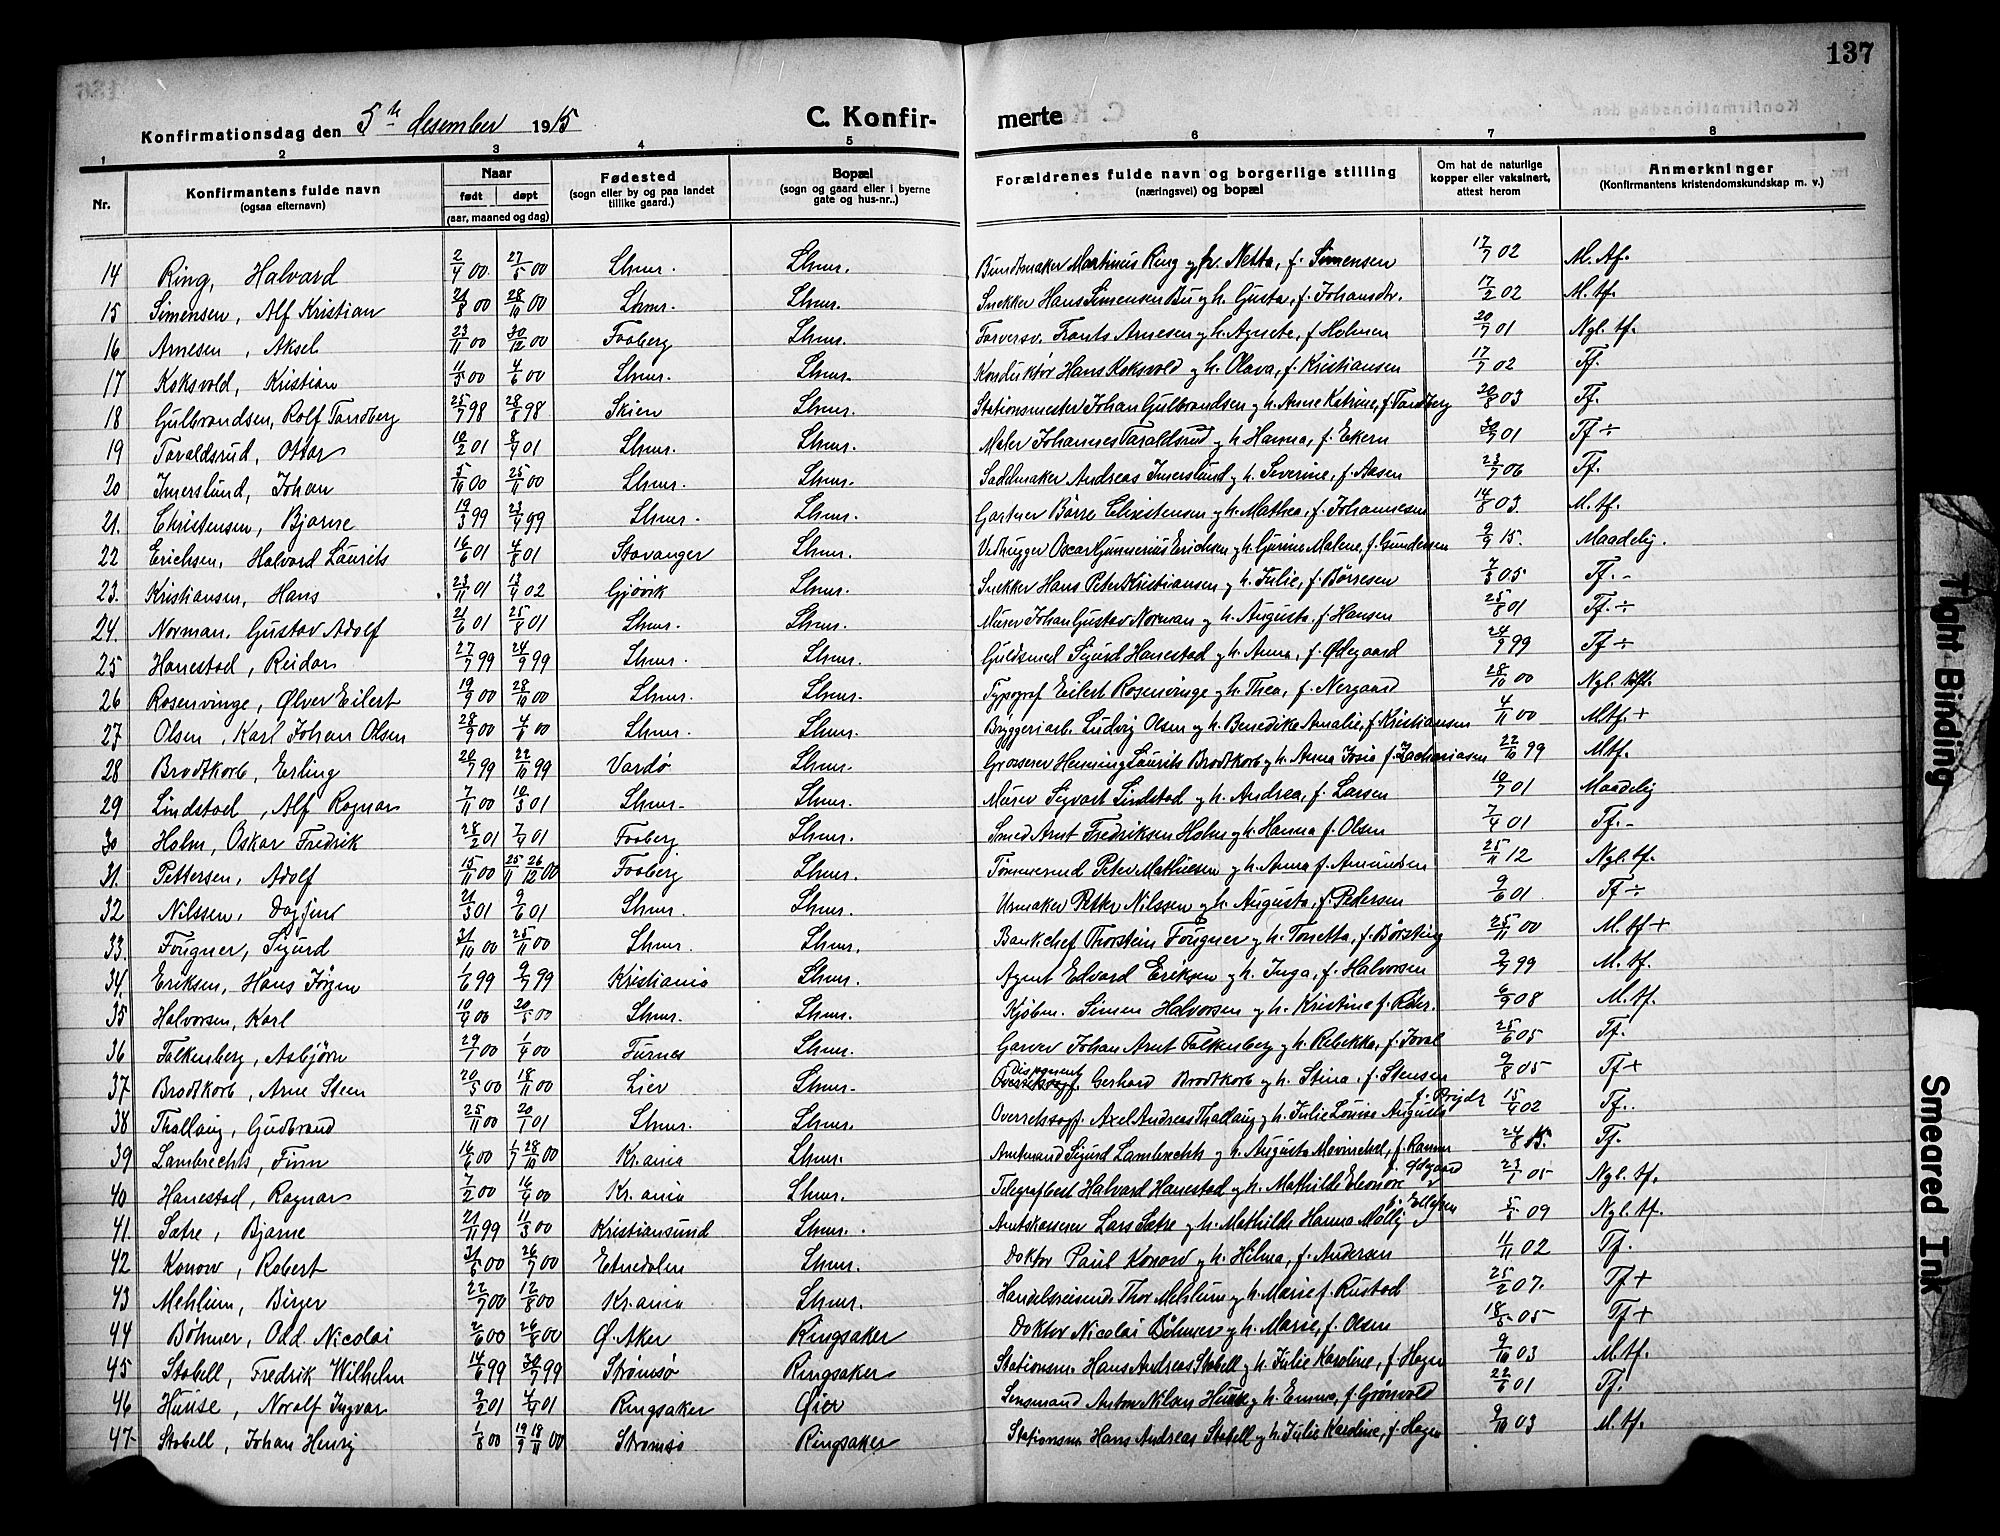 137
Konfirmationsdag den 5te desember 1915
C. Konfir- merte
1 2 3 4 5 6 7 8
Nr. Konfirmantens fulde navn (ogsaa efternavn) Naar født døpt (aar, maaned og dag) Fødested (sogn eller by og paa landet tillike gaard.) Bopæl (sogn og gaard eller i byerne gate og hus-nr..) Forældrenes fulde navn og borgerlige stilling (næringsvei) og bopæl Om hat de naturlige kopper eller vaksinert, attest herom Anmerkninger (Konfirmantens kristendomskundskap m. v.)
14 Ring, Halvard 2/4 00 27/5 00 Lhmr. Lhmr. Bundtmaker Martinius Ring og h. Netta, f. Simensen 17/7 02 M. tf.
15 Simensen, Alf Kristian 21/8 00 28/10 00 Lhmr. Lhmr. Snekker Hans Simensen Bu og h. Gusta, f. Johansdtr. 17/2 02 M. tf.
16 Arnesen, Aksel 23/11 00 30/12 00 Faaberg Lhmr. Farversv. Frants Arnesen og h. Agnete, f. Holmen 20/7 01 Ngl. tf.
17 Koksvold, Kristian 11/5 00 4/6 00 Lhmr. Lhmr. Konduktør Hans Koksvold og h. Olava, f. Kristiansen 17/7 02 Tf.
18 Gulbrandsen, Rolf Tandberg 25/7 98 28/8 98 Skien Lhmr. Stationsmester Johan Gulbrandsen og h. Anne Katrine, f. Tandberg 20/8 03 Tf.
19 Taraldsrud, Ottar 10/2 01 8/4 01 Lhmr. Lhmr. Maler Johannes Taraldsrud og h. Hanna, f. Ekern 30/7 01 Tf ÷
20 Imerslund, Johan 5/10 00 25/11 00 Lhmr. Lhmr. Sadelmaker Andreas Imerslund og h. Severine, f. Aasen 23/7 06 Tf.
21. Christensen, Bjarne 19/3 99 23/4 99 Lhmr. Lhmr. Gartner Børre Christensen og h. Mathea, f. Johannesen 14/8 03. M. tf.
22 Erichsen, Halvard Laurits 16/6 01 4/8 01 Stavanger Lhmr. Vedhugger Oscar Gunnerius Erichsen og h. Gurine Malene, f. Gundersen 9/9 15. Maadelig.
23. Kristiansen, Hans 23/11 01 13/4 02 Gjøvik Lhmr. Snekker Hans Peter Kristiansen og h. Julie, f. Børresen 7/8 05. Tf. -
24. Norman, Gustav Adolf 21/6 01 25/8 01 Lhmr. Lhmr. Murer Johan Gustav Norman og h. Augusta, f. Hansen 25/8 01 Tf. ÷
25 Hanestad, Reidar 27/7 99 24/9 99 Lhmr. Lhmr. Guldsmed Sigurd Hanestad og h. Anna, f. Ødegaard 24/9 99 Tf ÷
26 Rosenvinge, Ølver Eilert 19/9 00 28/10 00 Lhmr. Lhmr. Typograf Eilert Rosenvinge og h. Thea, f. Nergaard 28/10 00 Ngl. tf.
27 Olsen, Karl Johan Olsen 28/9 00 4/6 00 Lhmr. Lhmr. Bryggeriarb. Ludvig Olsen og h. Benedikte Amalie, f. Kristiansen 4/11 00 Mtf. +
28 Brodtkorb, Erling 20/7 99 22/10 99 Vardø Lhmr. Grosserer Henning Laurits Brodtkorb og h. Anna Josia f. Zachariasen 22/10 99 Mtf.
29 Lindstad, Alf Ragnar 7/11 00 10/3 01 Lhmr. Lhmr. Murer Sigvart Lindstad og h. Andrea, f. Larsen 10/7 01 Maadelig
30 Holm, Oskar Fredrik 28/2 01 7/4 01 Faaberg Lhmr. Smed Arnt Fredriksen Holm og h. Hanna f. Olsen 7/4 01 Tf. -
31. Pettersen, Adolf 15/11 00 25/11 26/12 00 Faaberg Lhmr. Tømmermd Peter Mathiesen og h. Anna f. Amundsen 25/11 12 Ngl. tf.
32 Nilssen, Dagfinn 21/3 01 9/6 01 Lhmr. Lhmr. Urmaker Petter Nilssen og h. Augusta, f. Pedersen 9/6 01. Tf ÷
33. Fougner, Sigurd 31/10 00 25/11 00 Lhmr. Lhmr. Bankchef Thorstein Fougner og h. Tonetta, f. Børsting 25/11 00 M. tf +
34. Eriksen, Hans Jörgen 1/6 99 9/7 99 Kristiania Lhmr. Agent Edvard Eriksen og h. Inga, f. Halvorsen 9/7 99 M. tf.
35 Halvorsen, Karl 10/4 00 20/5 00 Lhmr. Lhmr. Kjøbm. Simen Halvorsen og h. Kristine f. Röhr. 6/9 08 M. tf.
36 Falkenberg, Asbjørn 29/1 00 1/4 00 Furnes Lhmr. Garver Johan Arnt Falkenberg og h. Rebekka, f. Joral 25/6 05 Tf.
37. Brodtkorb, Arne Steen 20/5 00 18/11 00 Lier Lhmr. Disponent Gerhard Brodtkorb og h. Stina, f. Stensen 9/8 05 Tf +
38 Thallaug, Gudbrand 25/11 00 20/1 01 Lhmr. Lhmr. Overretssagf. Axel Andreas Thallaug og h. Julie Louise Augusta 15/4 02 Tf.
39 Lambrechts, Finn 16/6 00 1/7 28/10 00 Kr.ania Lhmr. Amtmand Sigurd Lambrechts og h. Augusta 24/8 15. Tf.
40 Hanestad, Ragnar 7/2 00 16/4 00 Kr.ania Lhmr. Telegrafbest Halvard Hanestad og h. Mathilde Eleonore f. Ødgaard 23/1 05 Ngl. tf.
41. Sætre, Bjarne 21/11 99 11/3 00 Kristiansund Lhmr. Amtskasserer Lars Sætre og h. Mathilde Hanna Molly f. Ellefsen 5/5 09 Ngl. tf.
42 Konow, Robert 31/5 00 26/7 00 Etnedalen Lhmr. Doktor Paul Konow og h. Hilma, f. Andersen 11/11 02 Tf.
43 Mehlum, Birger 22/7 00 12/8 00 Kr.ania Lhmr. Handelsreisende Thor Mehlum og h. Marie f. Rustad 25/2 07. Tf +
44 Bøhmer, Odd Nicolai 2/6 00 26/8 00 Ø. Aker Ringsaker Doktor Nicolai Bøhmer og h. Marie, f. Olsen 18/5 05 Tf +
45 Stabell, Fredrik Wilhelm 14/6 99 30/7 99 Strømsø Ringsaker Stationsm. Hans Andreas Stabell og h. Julie Karoline, f. Hagen 9/10 03 M. tf.
46 Huuse, Norolf Ingvar 9/2 01 4/4 01 Ringsaker Øier Lensmand Anton Nilsen Huuse og h. Emma, f. Grønvold 22/6 01 Tf.
47. Stabell, Johan Henrij 1/8 00 19/9 18/11 00 Strømsø Ringsaker Stationsm Hans Andreas Stabell og h. Julie Karoline, f. Hagen 9/10 03 M. tf.
Tight Binding
Smeared Ink